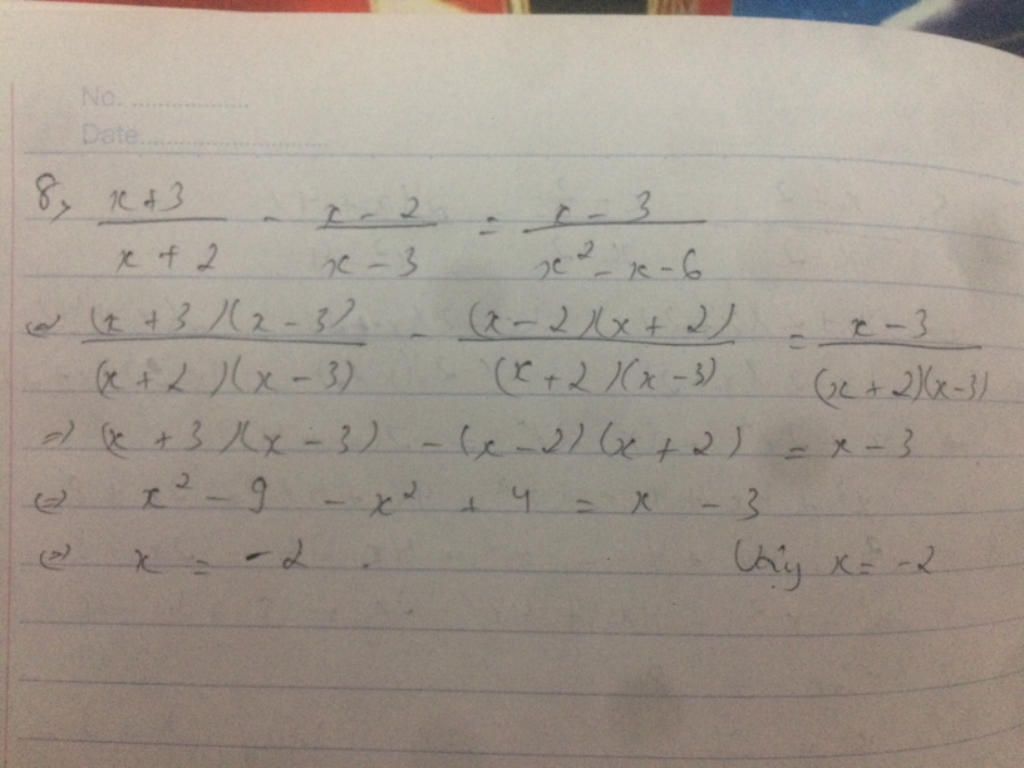 No. ..................
Date..............................
8, (x+3)/(x+2) - (x-2)/(x-3) = (x-3)/(x²-x-6)
⇔ ((x+3)(x-3))/((x+2)(x-3)) - ((x-2)(x+2))/((x+2)(x-3)) = (x-3)/((x+2)(x-3))
⇒ (x+3)(x-3) - (x-2)(x+2) = x-3
⇔ x² - 9 - x² + 4 = x - 3
⇔ x = -2 . Vậy x = -2